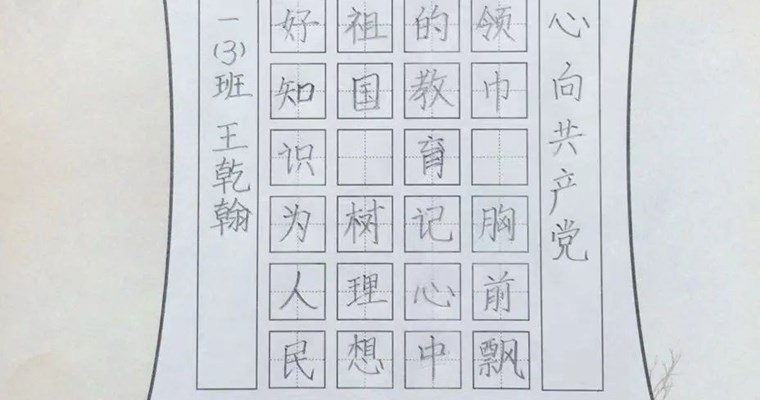 心向共产党
领巾 胸前飘
的教育记心中
祖国 树理想
好知识为人民
一(3)班 王乾翰